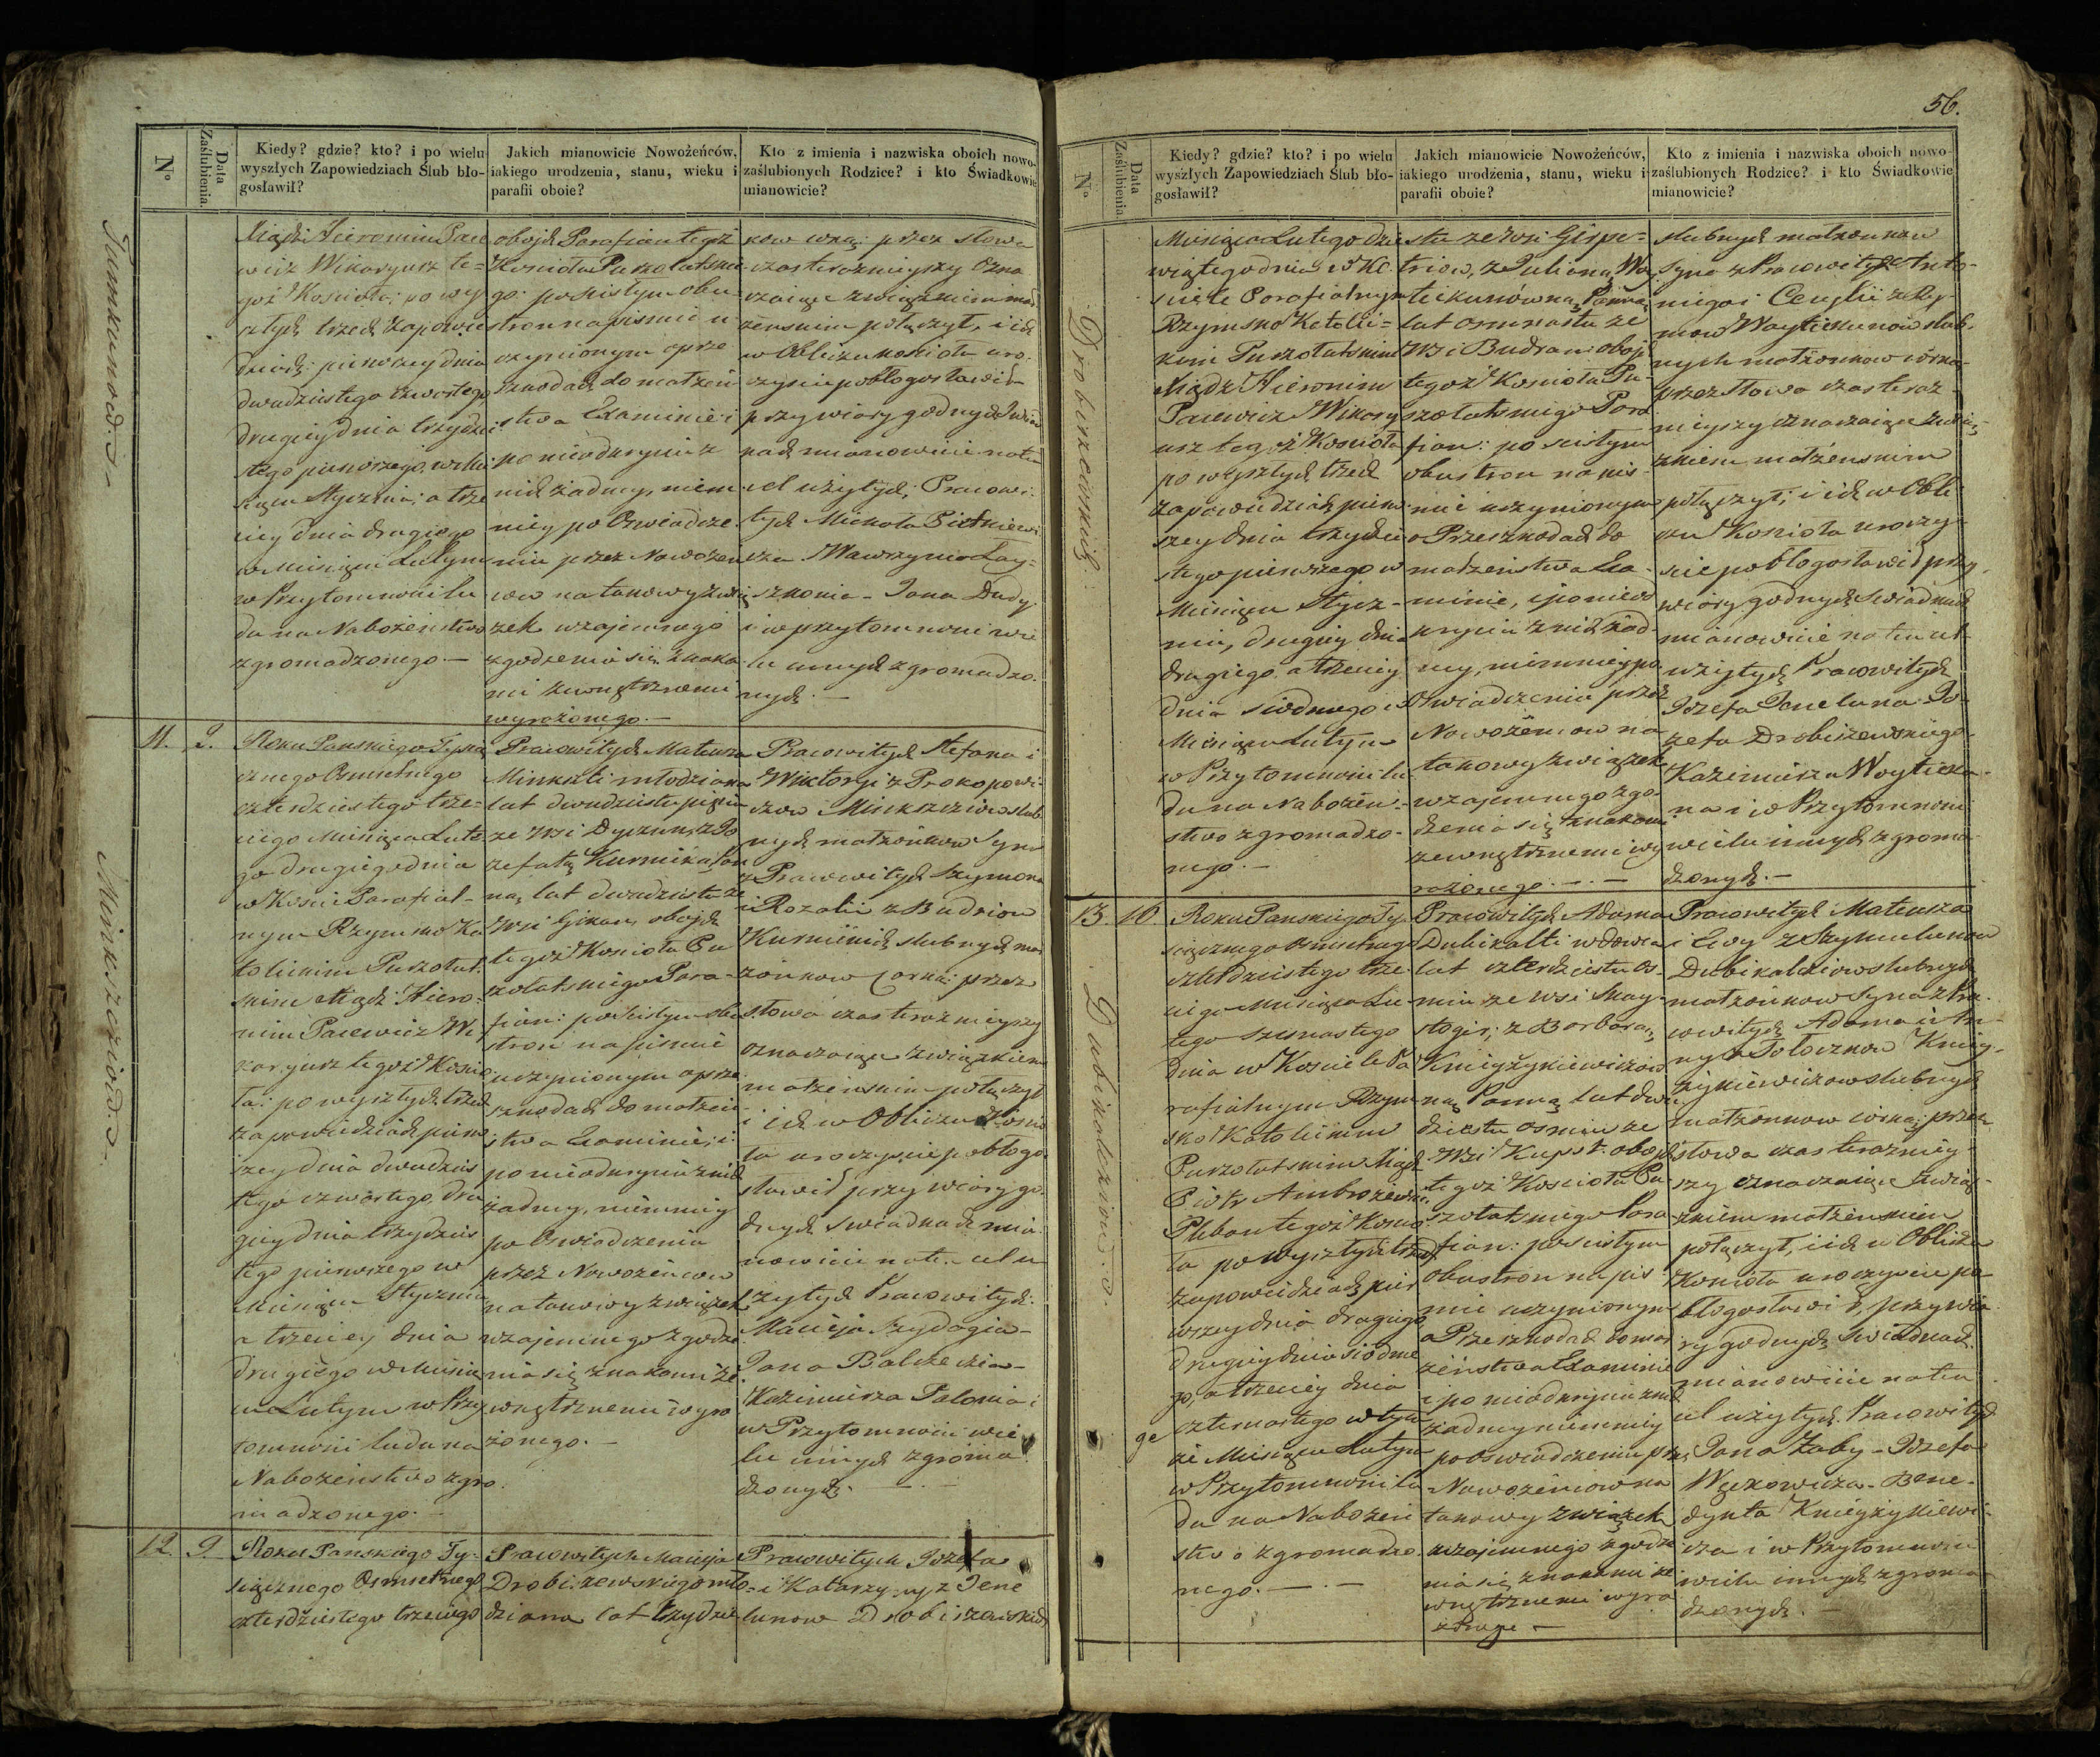 N°
Data Zaślubienia.
Kiedy? gdzie? kto? i po wielu
wyszłych Zapowiedziach Ślub bło-
gosławił?
Jakich mianowicie Nowożeńców,
iakiego urodzenia, stanu, wieku i
parafii oboie?
Kto z imienia i nazwiska oboich nowo-
zaślubionych Rodzice? i kto Świadkowie
mianowicie?
Xiądz Hieronim Pace
wicz Wikaryusz te=
goż Kościoła; po wy
szłych trzech Zapowie
dziach: pierwszey dnia
dwudziestego czwartego,
drugiey dnia trzydzie
stego pierwszego, w Mie
siącu Styczniu; a trze
ciey dnia drugiego
w Miesiącu Lutym
w Przytomności lu
du na Nabożeństwo
zgromadzonego.—
oboych Parafian tegoż
Kościoła Puszołatskie
go: po ścisłym obu
stron na piśmie u
czynionym o prze
szkodach do małżeń
stwa Examinie i
po nieodkryciu z
nich żadney, niem
niey po Oswiadcze
niu przez Nowożeń
ców na takowy Zwią
zek wzajemnego
zgodzenia się znaka
mi zewnętrznemi
wyrażonego.—
kow corką: przez słowa
czas teraznieyszy ozna
czaiące związkiem mał
żeńskim połączył, i ich
w Obliczu kościoła uro-
czyście pobłogosławił
przy wiary godnych Swia
dkach mianowicie na ten
cel użytych; Pracowi-
tych Michała Pietkiewi
cza Wawrzynca Łay=
szkonia - Jana Dudy
i w przytomności wie
lu innych zgromadzo
nych.—
11.
2.
Roku Pańskiego Tysią
cznego Ósmsetnego
czterdziestego trze=
ciego Miesiąca Lute
go drugiego dnia
w Kościele Parafial-
nym Rzymsko Ka
tolickim Puszołat
skim Xiądz Hiero-
nim Pacewicz Wi
karyusz tegoż Kościo
ła: po wyszłych trzech
zapowiedziach pierw
szey dnia dwudzies
tego czwartego, dru
giey dnia trzydzies
tego pierwszego w
Miesiącu Styczniu
a trzeciey dnia
drugiego w Miesią
cu Lutym w Przy
tomności ludu na
Nabożeństwo zgro
madzonego.—
Pracowitych Mateusza
Minkszti młodziana
lat dwudziestu pięciu
ze Wsi Dyczun, z Jo
zefatą Kurmiką Pan
ną, lat dwudziestu ze
Wsi Gikan, oboych
tegoż Kościoła Pu
szołatskiego Para-
fian: po ścisłym obu
stron na piśmie
uczynionym o prze
szkodach do małżeń
stwa Examinie; i
po nieodkryciu z nich
żadney, niemniey
po Oswiadczeniu
przez Nowożeńcow
na takowy związek
wzajemnego zgodze
nia się znakami ze
wnętrznemi wyra
żonego.—
Pracowitych Stefana i
Wiktoryi z Prokopowi
czow Minkszciow slub
nych małżonkow Syna
z Pracowitych Szymona
i Rozalii z Budriow
Kurmikich slubnych mał
żonkow Corką: przez
słowa czas teraznieyszy
oznaczaiące związkiem
małżeńskim połączył
i ich w Obliczu Kościo
ła uroczyście pobłogo
sławił przy wiary go
dnych swiadkach mia
nowicie na ten cel u
żytych Pracowitych
Macieja Szydagia-
Jana Balcze
Kazimierza Palonia i
w Przytomności wie
lu innych zgroma
dzonych.—
12.
9.
Roku Pańskiego Ty-
siącznego Osmsetnego
czterdziestego trzeciego
Pracowitych Macieja
Drobiszewskiego mło=
dziana lat trzydzie
Pracowitych Jozefa
i Katarzyny z Jene
lunow Drobiszewskich
Minkszciow.
56.
N°
Data Zaślubienia
Kiedy? gdzie? kto? i po wielu
wyszłych Zapowiedziach Ślub bło-
gosławił?
Jakich mianowicie Nowożeńców,
iakiego urodzenia, stanu, wieku i
parafii oboie?
Kto z imienia i nazwiska oboich nowo-
zaślubionych Rodzice? i kto Świadkowie
mianowicie?
Drobiszewskich.
Miesiąca Lutego dzie
wiątego dnia w Ko
ściele Parafialnym
Rzymsko Katolic=
kim Puszołatskim
Xiądz Hieronim
Pacewicz Wikary
usz tegoż Kościoła
po wyszłych trzech
zapowiedziach pierw
szey dnia trzydzie
stego pierwszego w
Miesiącu Stycz-
niu, drugiey dnia
drugiego a trzeciey
dnia siodmego w
Miesiącu Lutym
w Przytomności lu
du na Nabożeń-
stwo zgromadzo-
nego.—
stu ze Wsi Girpe=
triow, z Julianą Way
tiekunówną Panną
lat ośmnastu ze
Wsi Budran oboych
tegoż Kościoła Pu-
szołatskiego Para
fian: po ścisłym
obustron na piś-
mie uczynionym
o Przeszkodach do
małżeństwa Exa-
minie, i po nieod
kryciu z nich żad-
ney, niemniey po
Oswiadczeniu przez
Nowożeńcow na
takowy związek
wzajemnego zgo-
dzenia się znakami
zewnętrznemi wy
rażonego.—.—
slubnych małżonkow
Syna z Pracowitych Anto-
niego i Cecylii z Ray
mow Waytiekunow slub-
nych małżonkow córką
przez Słowa czas teraz-
nieyszy oznaczaiące Zwią-
zkiem małżeńskim
połączył; i ich w Obli
czu Kościoła uroczy-
scie pobłogosławił przy
wiary godnych Swiadkach
mianowicie na ten cel
użytych Pracowitych
Jozefa Jeneluna Jo-
zefa Drobiszewskiego-
Kazimierza Woytieku-
na i w Przytomności
wielu innych zgroma-
dzonych.—
13.
16.
Dubikalciow.
Roku Pańskiego Ty-
siącznego Osmsetnego
czterdziestego trze-
ciego Miesiąca Lu-
tego szesnastego
dnia w Kościele Pa
rafialnym Rzym-
sko Katolickim
Puszołatskim Xiądz
Piotr Ambrożewicz
Pleban tegoż Kościo
ła po wyszłych trzech
zapowiedziach pier
wszey dnia drugiego
drugiey dnia siodme
go, a trzeciey dnia
czternastego w tym
że Miesiącu Lutym
w Przytomności lu
du na Nabożeń
stwo zgromadzo-
nego.—.—
Pracowitych Adama
Dubikalti wdowca
lat czterdziestu os-
miu ze wsi Skay-
stogir; z Barbarą
Kniezykiewiczow
ną Panną lat dwu
dziestu osmiu ze
Wsi Kupst. oboych
tegoż Kościoła Pu
szołatskiego Para
fian: po ścisłym
obustron na piś
mie uczynionym
o Przeszkodach do mał
żeństwa Examinie
i po nieodkryciu z nich
żadney niemniey
po oswiadczeniu prze
Nowożeńcow na
takowy związek
wzajemnego zgodze
nia się znakami ze
wnętrznemi wyra
żonego —
Pracowitych Mateusza
i Ewy z Szymelunow
Dubikalciow slubnych
małżonkow Syna z Pra-
cowitych Adama i An-
ny z Tołoczkow Kniezy-
żykiewiczow slubnych
małżonkow córką; przez
słowa czas teraznicy-
szy oznaczaiące Zwią-
zkiem małżeńskim
połączył, i ich w Obliczu
Kościoła uroczyscie po
błogosławił, przy wia
ry godnych Swiadkach
mianowicie na ten
cel użytych Pracowitych
Jana Żaby - Jozefa
Węckowicza - Bene-
dykta Kniezykiewi-
cza i w Przytomności
wielu innych zgroma
dzonych.—